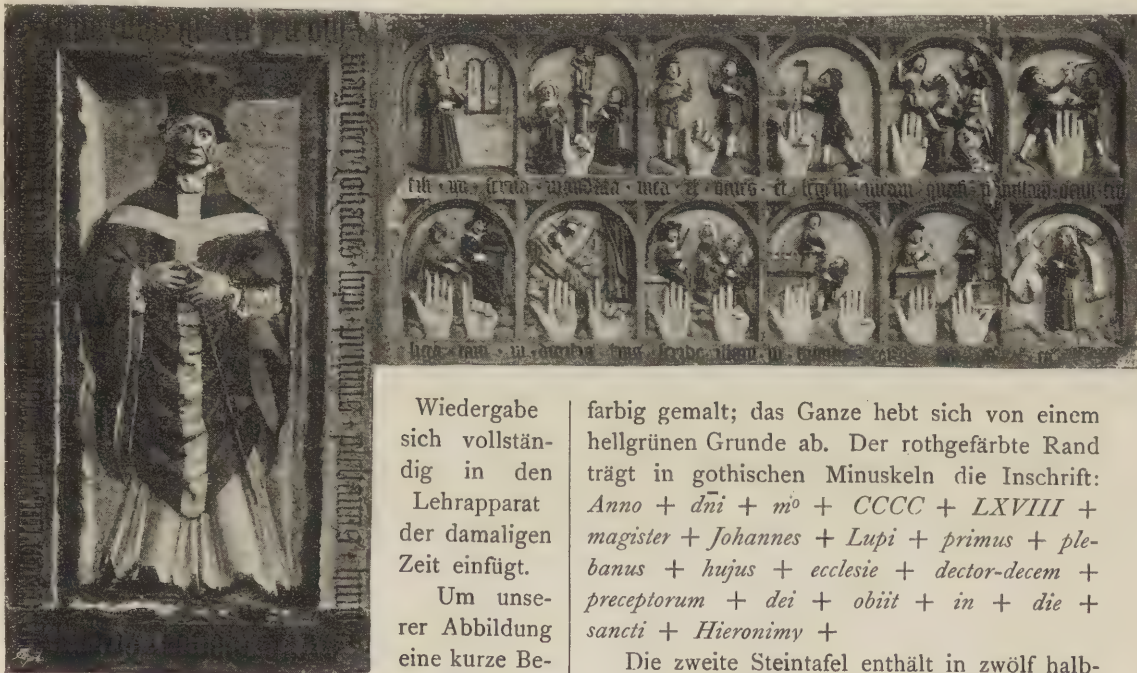 fili
mandata · mea · et
et · legem · meam
scribe · illam · in
magister · Johannes · lupi · primus · plebanus · huius
Wiedergabe
sich vollstän-
dig in den
Lehrapparat
der damaligen
Zeit einfügt.
Um unse-
rer Abbildung
eine kurze Be-
farbig gemalt; das Ganze hebt sich von einem
hellgrünen Grunde ab. Der rothgefärbte Rand
trägt in gothischen Minuskeln die Inschrift:
Anno + dn̄i + mº + CCCC + LXVIII +
magister + Johannes + Lupi + primus + ple-
banus + hujus + ecclesie + dector-decem +
preceptorum + dei + obiit + in + die +
sancti + Hieronimy +
Die zweite Steintafel enthält in zwölf halb-